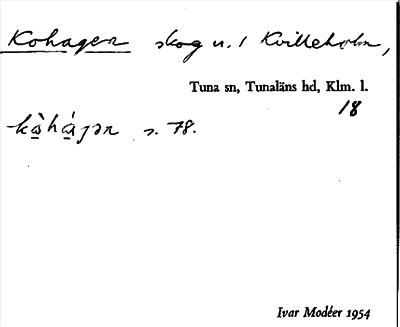 Kohagen skog u. / Kvilleholm,
Tuna sn, Tunaläns hd, Klm. l.
18
kò̲há̲gən s. 78.
Ivar Modéer 1954